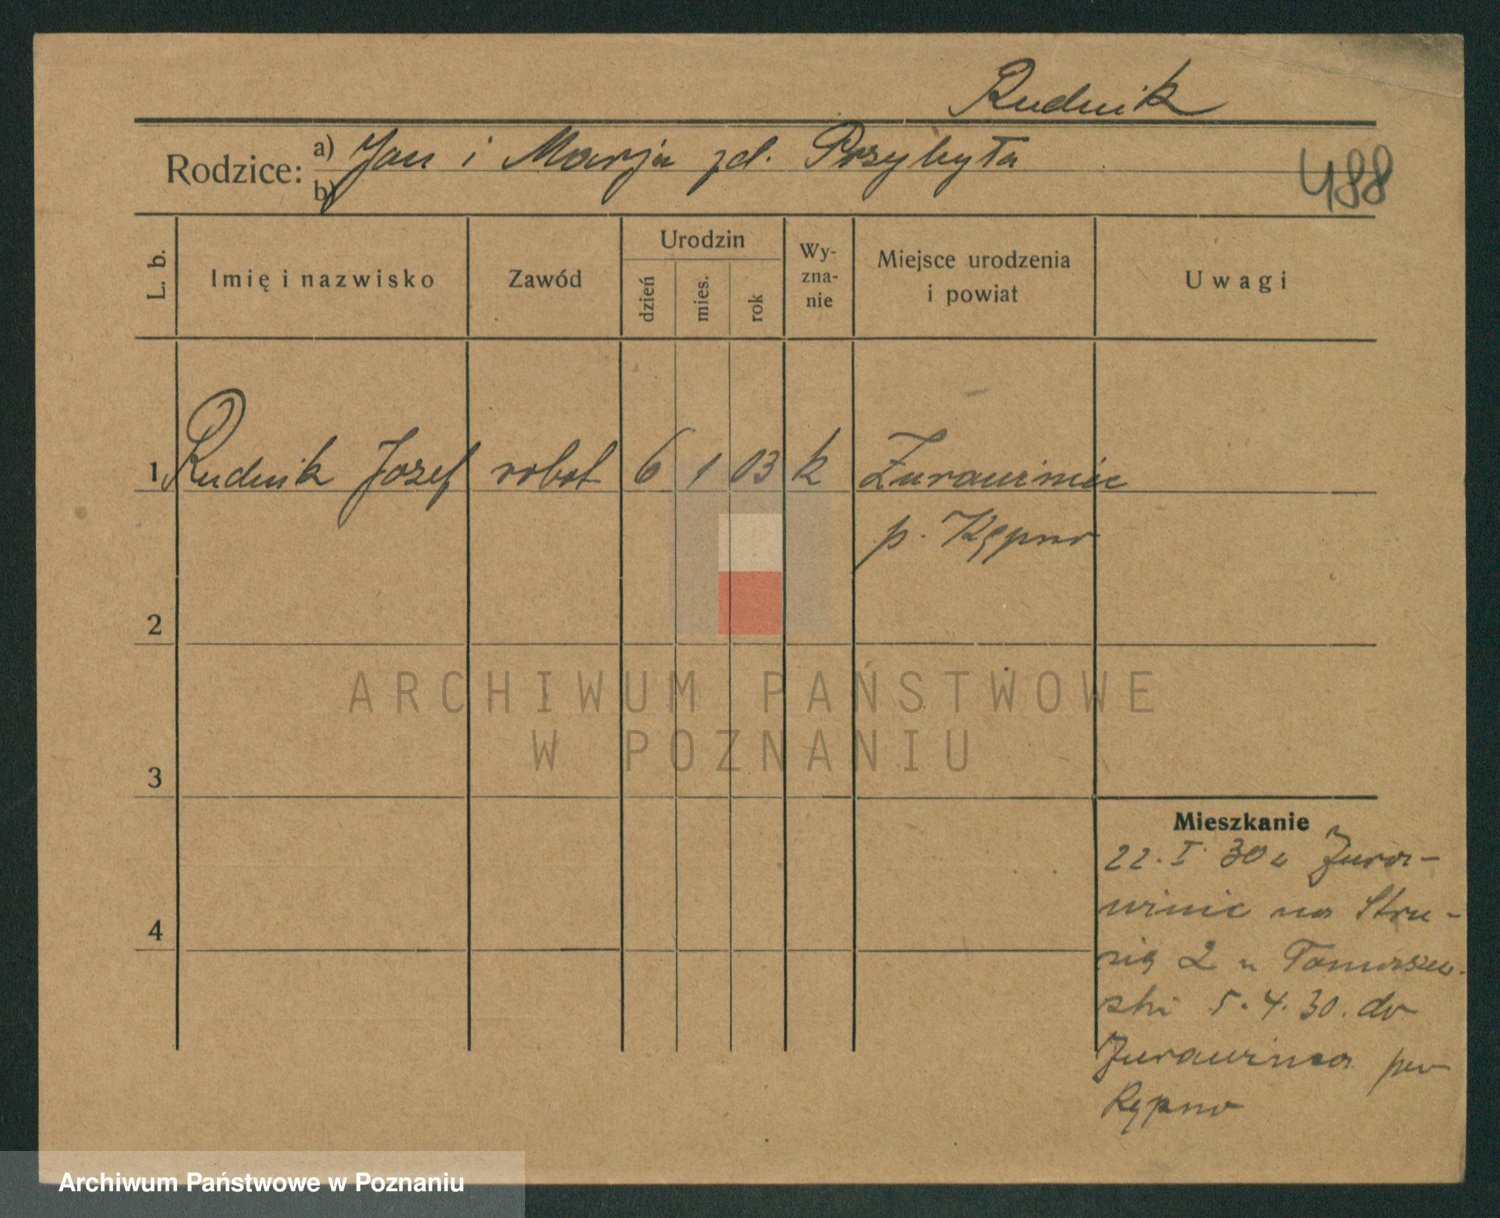 Rudnik
Rodzice: a) Jan i Marja zd. Przybyła
b)
488
L. b.
Imię i nazwisko
Zawód
Urodzin
dzień
mies.
rok
Wy-
zna-
nie
Miejsce urodzenia
i powiat
Uwagi
1 Rudnik Jozef robot 6 1 03 k Żurawiniec
p. Kępno
2
3
4
ARCHIWUM PAŃSTWOWE
W POZNANIU
Mieszkanie
22. I. 30 z Żura-
winic na
2 u Tomasze-
ski 5. 4. 30. do
Żurawinca pow
Kępno
Archiwum Państwowe w Poznaniu